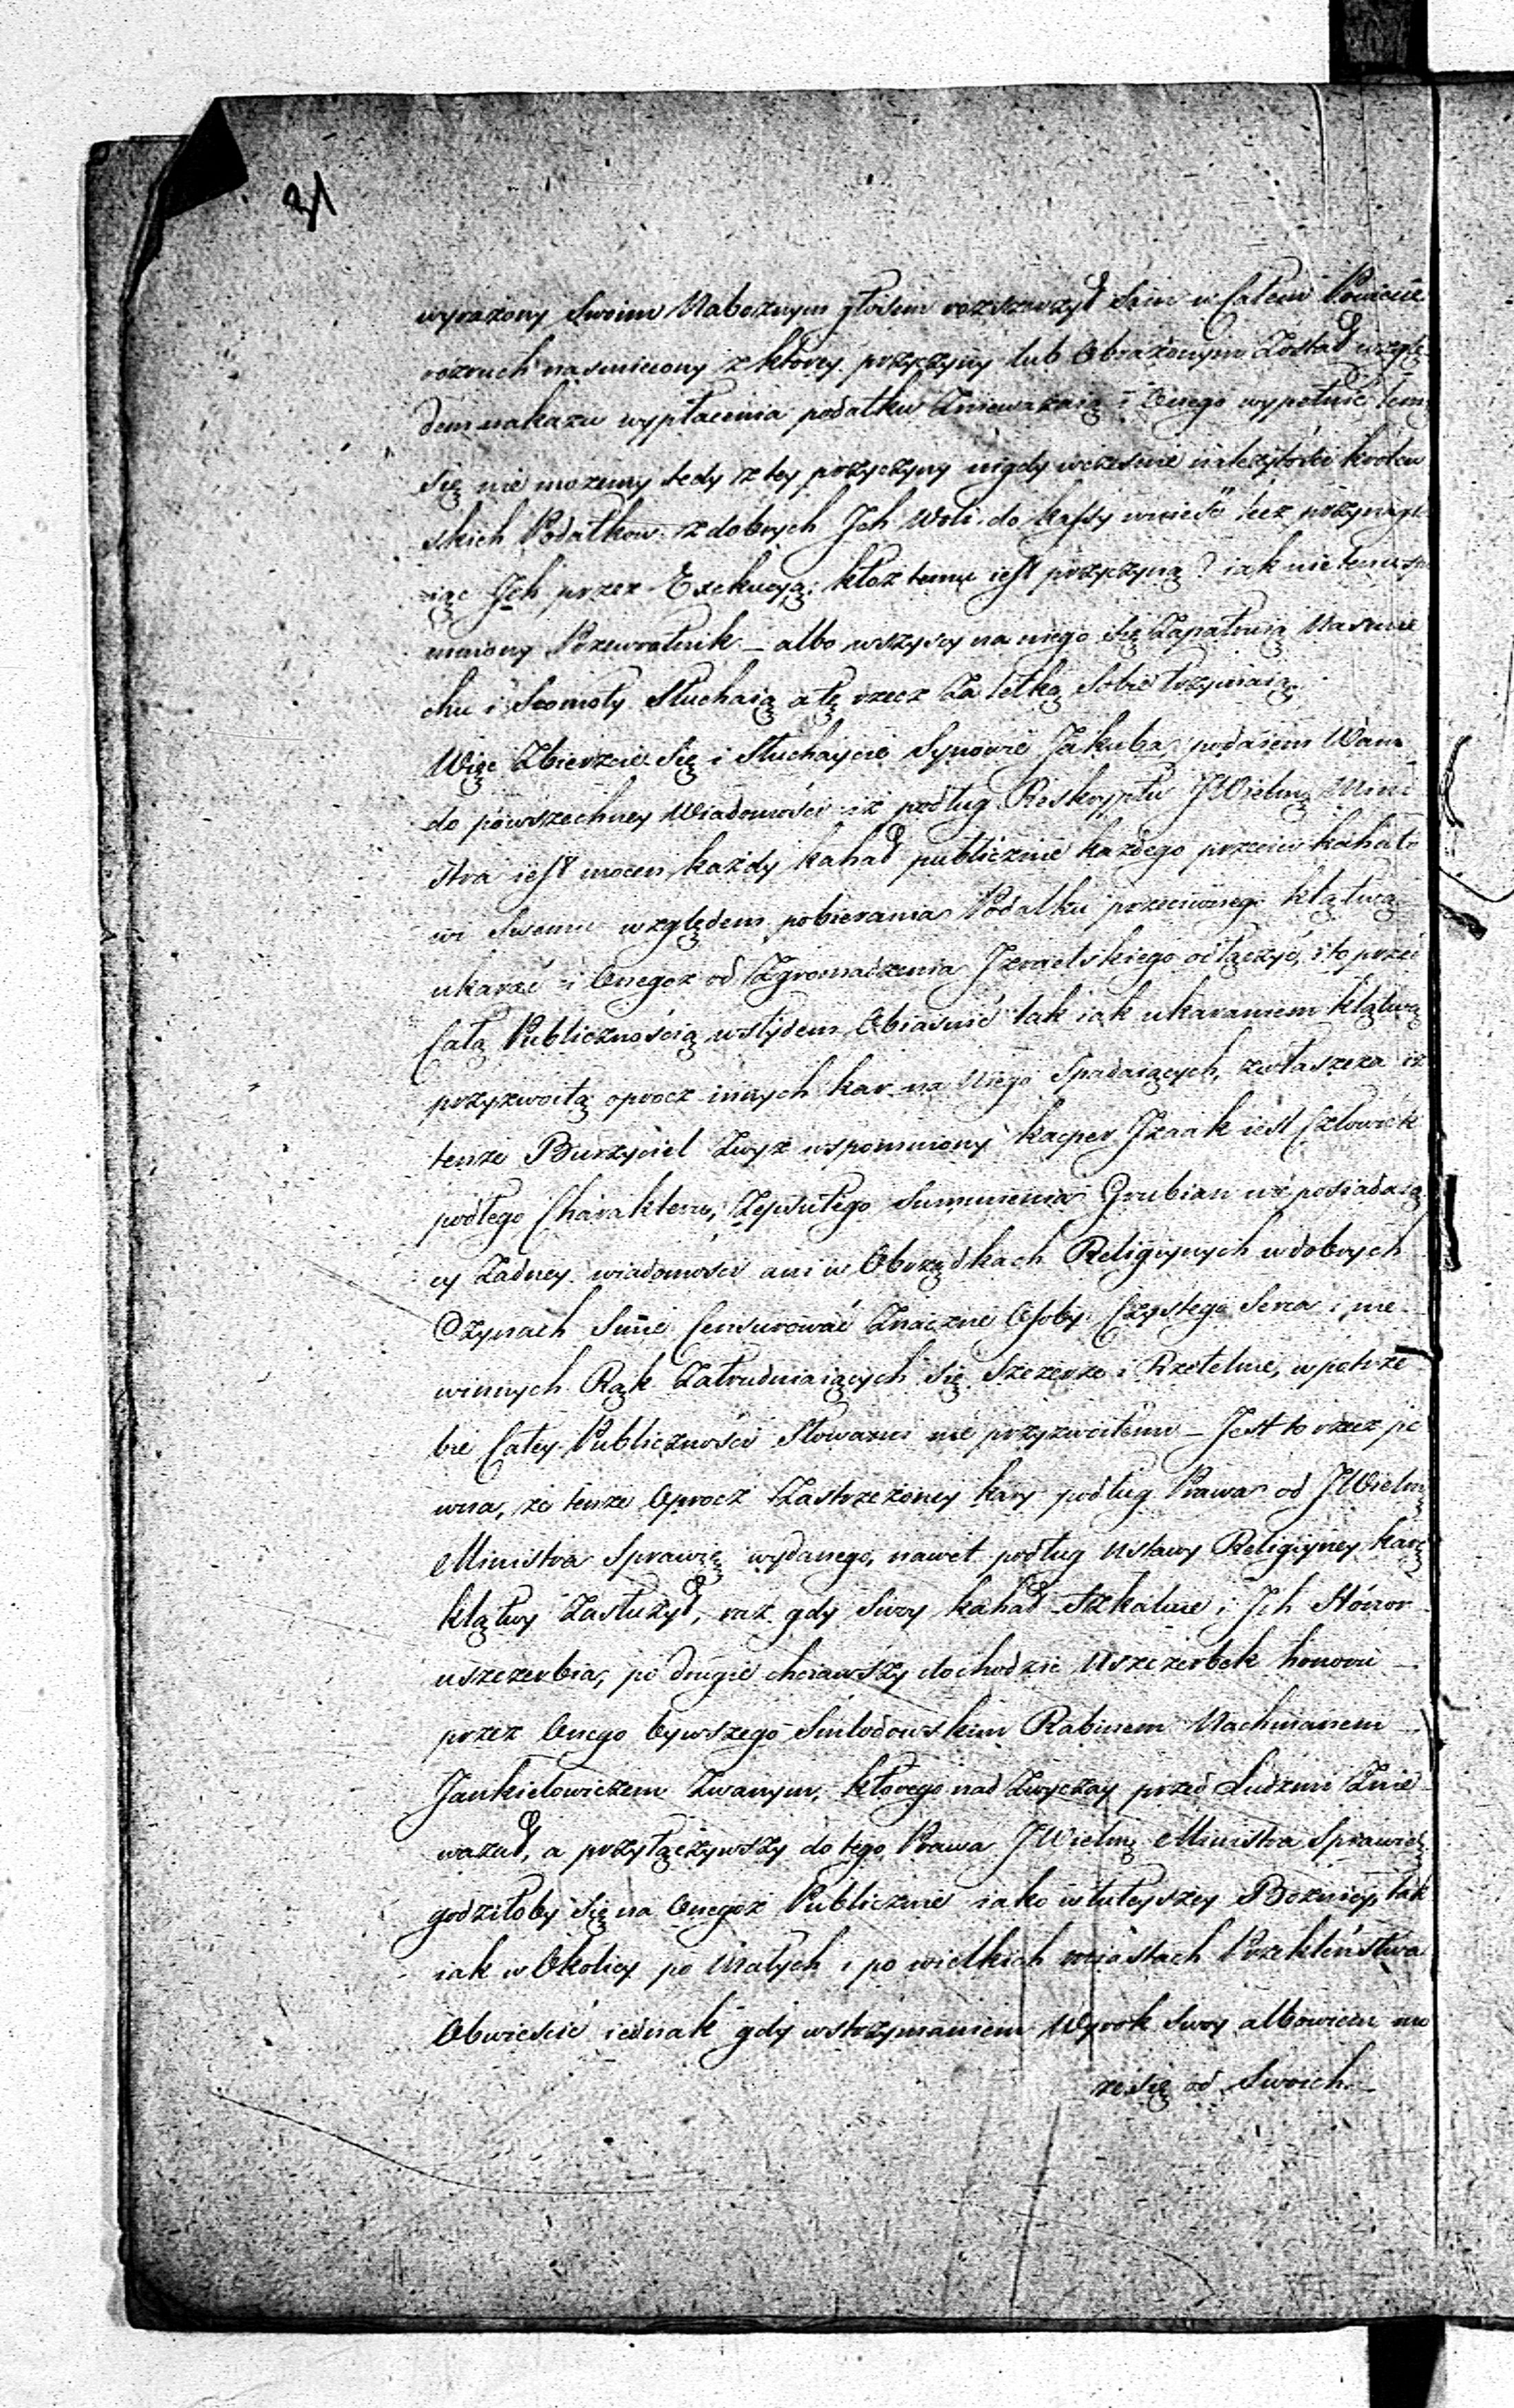 31
wyrażony Swoim Nabożnym głosem rozszerzył Sam w Całem Powiecie
rozruch naśmiecony z którey przyczyny lub Obrażonym Został wzglę-
dem nakazu wypłacenia podatku Znieważaią i Onego wypełnić temu
Się nie możemy tedy z tey przyczyny nigdy wcześnie należytości królew
skich Podatkow z dobrych Ich Woli do kassy wnieść lecz przynagl
iąc Ich przez Exekucyą; któż temu iest przyczyną? iak nie ten wspo
mniony Przewrotnik – albo wszyscy na niego Się Zapatruią Naśmie
chu i Sromoty Słuchaią a tę rzecz Za letką Sobie trzymaią.
Więc Zbierzcie Się i Słuchaycie Synowie Jakuba podaiem Wam
do powszechney Wiadomości iż podług Reskryptu JWielmę Mini
stra iest mocen każdy kahał publicznie każdego przeciw kahało
wi Swemu względem pobierania Podatku przeciwnego klątwą
ukarać i Onegoż od Zgromadzenia Izraelskiego odłączyć, i to przed
Całą Publicznością wstydem Obiaśnić tak iak ukaraniem klątwą
przyzwoitą oprocz innych kar na Niego Spadaiących, zwłaszcza iż
tenże Burzyciel Zwyż wspomniony Kacper Izaak iest Człowiek
podłego Charakteru, Zepsutego Sumnienia Grubian nie posiadaią
cy Żadney wiadomości ani w Obrządkach Religiynych w dobrych
Czynach Smie Censurować Znaczne Osoby Czystego Serca i nie-
winnych Rąk Zatrudniaiących Się Szczerze i Rzetelnie, w potrze
bie Całey Publiczności Słowami nie przyzwoitemi – Jest to rzecz pe
wna, że tenże Oprocz Zastrzeżoney kary podług Prawa od JWielmę
Ministra Sprawię wydanego, nawet podług Ustawy Religiyney karę
klątwy Zasłużył, raz gdy Swoy kahał Szkaluie i Ich Honor
uszczerbia, po drugie chciawszy dochodzić Uszczerbek honoru –
przez Onego bywszego Rabinem Nachmanem –
Jankielowiczem Zwanym, którego nad Zwyczay przed Ludźmi Znie-
ważał, a przyłączywszy do tego Prawa JWielmę Ministra Sprawied
godziłoby Się na Onegoż Publicznie iako w tuteyszey Bożnicy, tak
iak w Okolicy po Małych i po wielkich miastach Przekleństwa
Obwieścić iednak gdy wstrzymaniem Wyrok Swoy albowiem mo
że Się od Swoich –